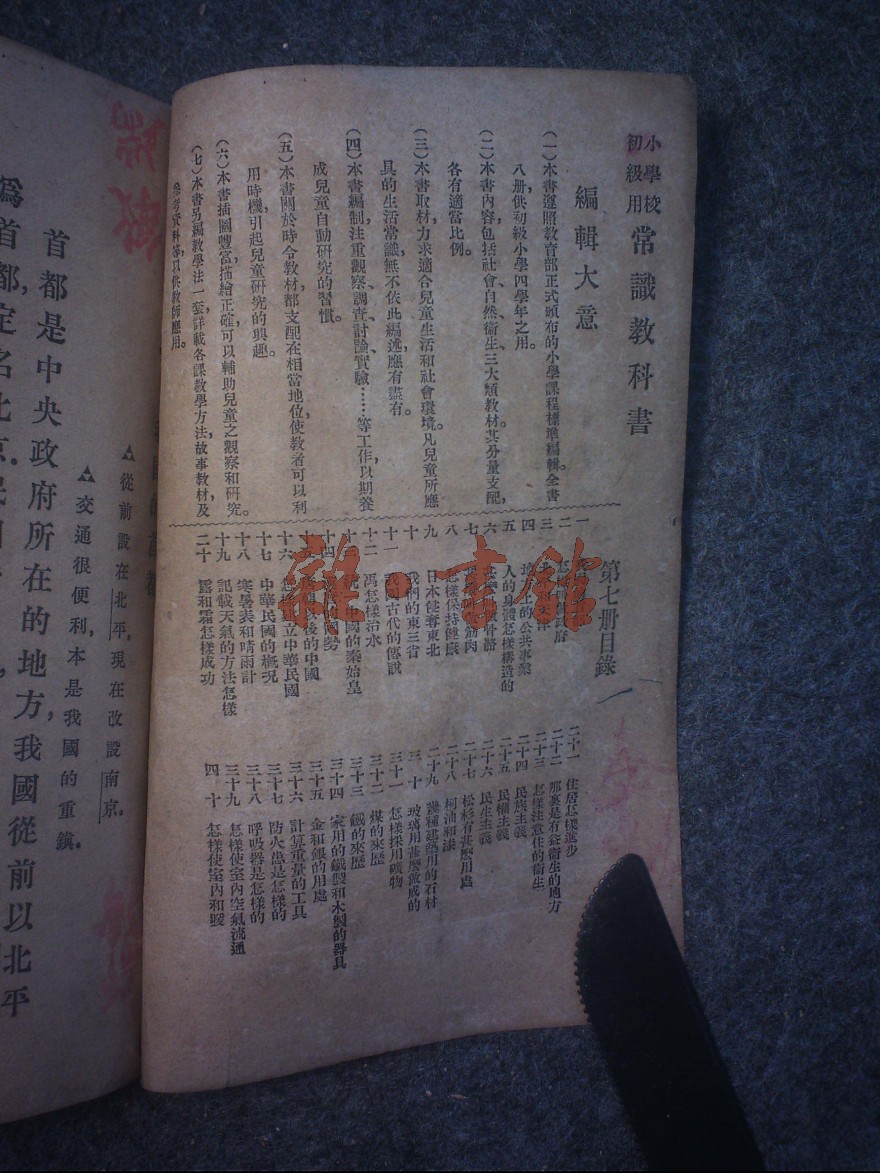 小學校
初級用
常識教科書
編輯大意
(一)本書遵照教育部正式頒布的小學課程標準編輯。全書
八册,供初級小學四學年之用。
(二)本書內容包括社會、自然、衞生三大類教材其分量支配,
各有適當比例。
(三)本書取材力求適合兒童生活和社會環境。凡兒童所應
具的生活常識,無不依此編述應有盡有。
(四)本書編制注重觀察、調查、討論、實驗……等工作以期養
成兒童自動研究的習慣。
(五)本書關於時令教材都支配在相當地位使教者可以利
用時機,引起兒童研究的興趣。
(六)本書插圖豐富描繪正確可以輔助兒童之觀察和研究。
(七)本書另編教學法一套詳載各課教學方法故事教材,及
參考資料等以供教師應用。
第七册目錄
一
二
三
四 地方的公共事業
五 人的身體怎樣構造的
六
七
八 怎樣保持健康
九 日本侵奪東北
十 我們的東三省
十一 我國古代的傳說
十二 禹怎樣治水
十三 的秦始皇
十四
十五 後的中國
十六 怎樣建立中華民國
十七 中華民國的概況
十八 寒暑表和晴雨計
十九 記載天氣的方法怎樣
二十 露和霜怎樣成功
二十一 住居怎樣進步
二十二 那裏是有益衞生的地方
二十三 怎樣注意住的衞生
二十四 民族主義
二十五 民權主義
二十六 民生主義
二十七 松杉有甚麼用處
二十八 桐油和漆
二十九 幾種建築用的石材
三十 玻璃用甚麼做成的
三十一 怎樣採用礦物
三十二 煤的來歷
三十三 鐵的來歷
三十四 家用的鐵製和木製的器具
三十五 金和銀的用處
三十六 計算重量的工具
三十七 防火患是怎樣的
三十八 呼吸器是怎樣的
三十九 怎樣使室內空氣流通
四十 怎樣使室內和暖
雜·書館
▲從前設在北平,現在改設南京。
▲交通很便利,本是我國的重鎮。
首都是中央政府所在的地方,我國從前以北平
爲首都,定名北京。民國